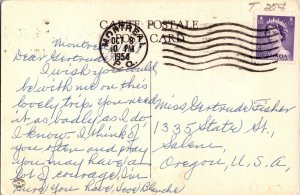 T 254
CARTE POSTALE
POST CARD
MONTREAL
DEC 6
10 PM
1954
P.Q.
CANADA
Montreal
Dear Gertrude
I wish you could
be with me on this
lovely trip, you need
it as badly as I do
I know. I think of
you often and pray
you may have a
lot of courage. I'm
sure you have. Love Blanche
Miss Gertrude Fisher
1335 State St.,
Salem
Oregon, U.S.A.